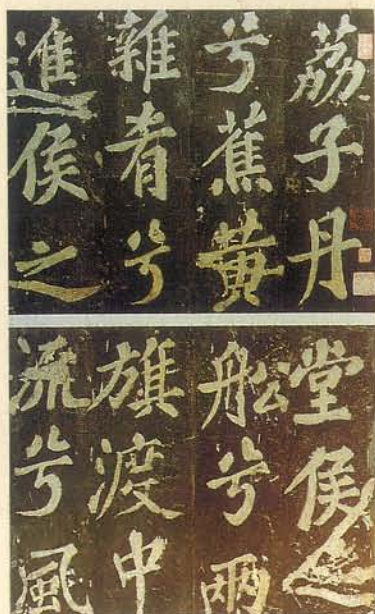 荔子丹
兮蕉黄
雜肴兮
進侯之
堂侯之
船兮兩
旗渡中
流兮風